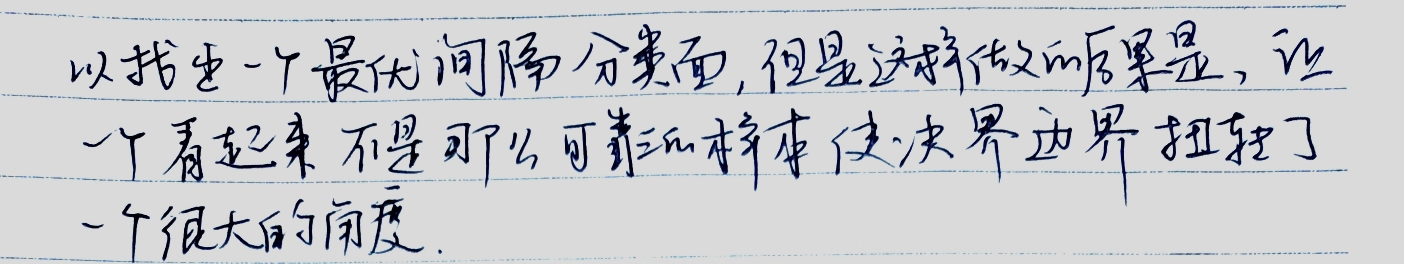 以找出一个最优间隔分类面,但是这样做的后果是、让
一个看起来不是那么可靠的样本使决界边界扭转了
一个很大的角度.